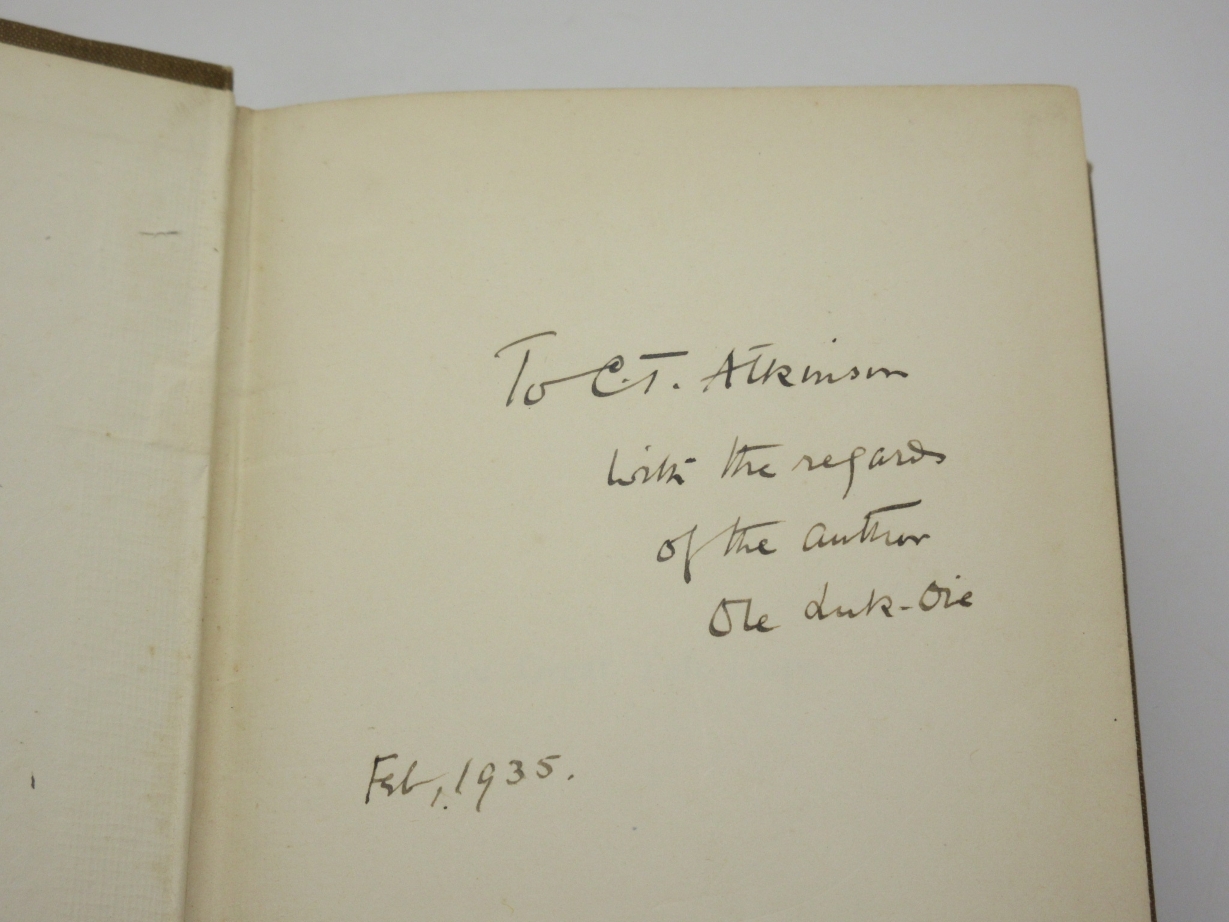 To C.T. Atkinson
with the regards
of the author
Ole Luk-Oie
Feb, 1935.